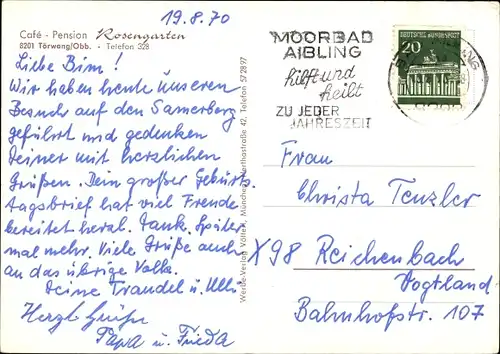 19.8.70
Café - Pension Rosengarten
8201 Törwang/Obb. • Telefon 328
Liebe Bim!
Wir haben heute unseren
Besuch auf den Samerberg
geführt und gedenken
Deiner mit herzlichen
Grüßen. Dein großer Geburts
tagsbrief hat viel Freude
bereitet herzl. Dank. Später
mal mehr. Viele Grüße auch
an das übrige Volk.
Deine Traudel u. Ulli
Herzl Grüße
Papa u. Frieda
Werbe-Verlag München, Marthastraße 42, Telefon 57 28 97
MOORBAD
AIBLING
hilft und
heilt
ZU JEDER
JAHRESZEIT
DEUTSCHE BUNDESPOST
20
Frau
Christa Tenzler
X98 Reichenbach
Vogtland
Bahnhofstr. 107